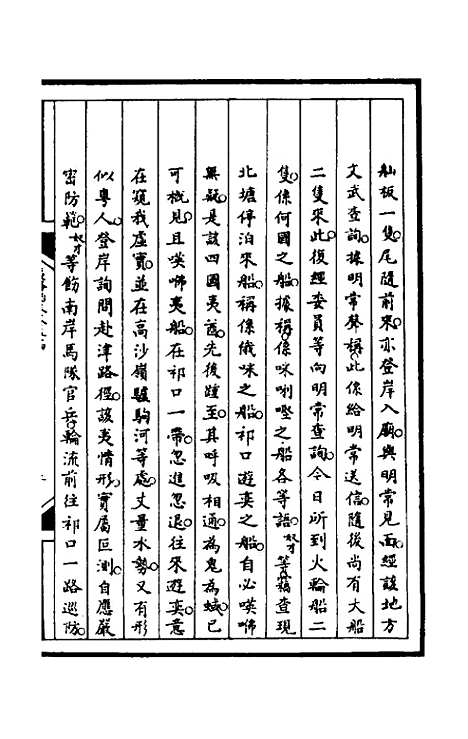 舢板一隻尾隨前來亦登岸入廟與明常見面經該地方
文武查詢據明常聲稱此係給明常送信隨後尚有大船
二隻來此復經委員等向明常查詢今日所到火輪船二
隻係何國之船據稱係咪唎㗎之船各等語奴才等竊查現
北塘停泊來船稱係俄咪之船祁口遊奕之船自必𠸄咈
無疑是該四國夷酋先後踵至其呼吸相通為鬼為蜮已
可概見且𠸄咈夷船在祁口一帶忽進忽退往來遊奕意
在窺我虛實並在高沙嶺驢駒河等處丈量水勢又有形
似粵人登岸詢問赴津路徑該夷情形實屬叵測自應嚴
密防範奴才等飭南岸馬隊官兵輪流前往祁口一路巡防